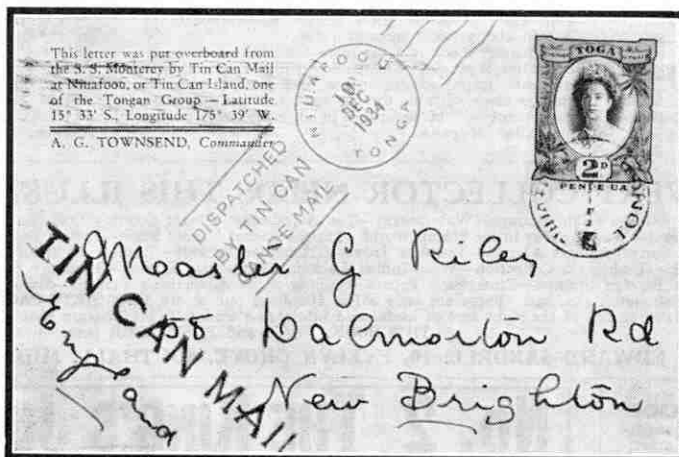 This letter was put overboard from
the S. S. Monterey by Tin Can Mail
at Niuafoou, or Tin Can Island, one
of the Tongan Group — Latitude
15° 33' S., Longitude 175° 39' W.
A. G. TOWNSEND, Commander
NIUAFOOU
10
DEC
1934
TONGA
TOGA
2D
PENE E UA
TONGA
DISPATCHED
BY TIN CAN
CANOE MAIL
TIN CAN MAIL
Master G Riley
58 Dalmorton Rd
New Brighton
England